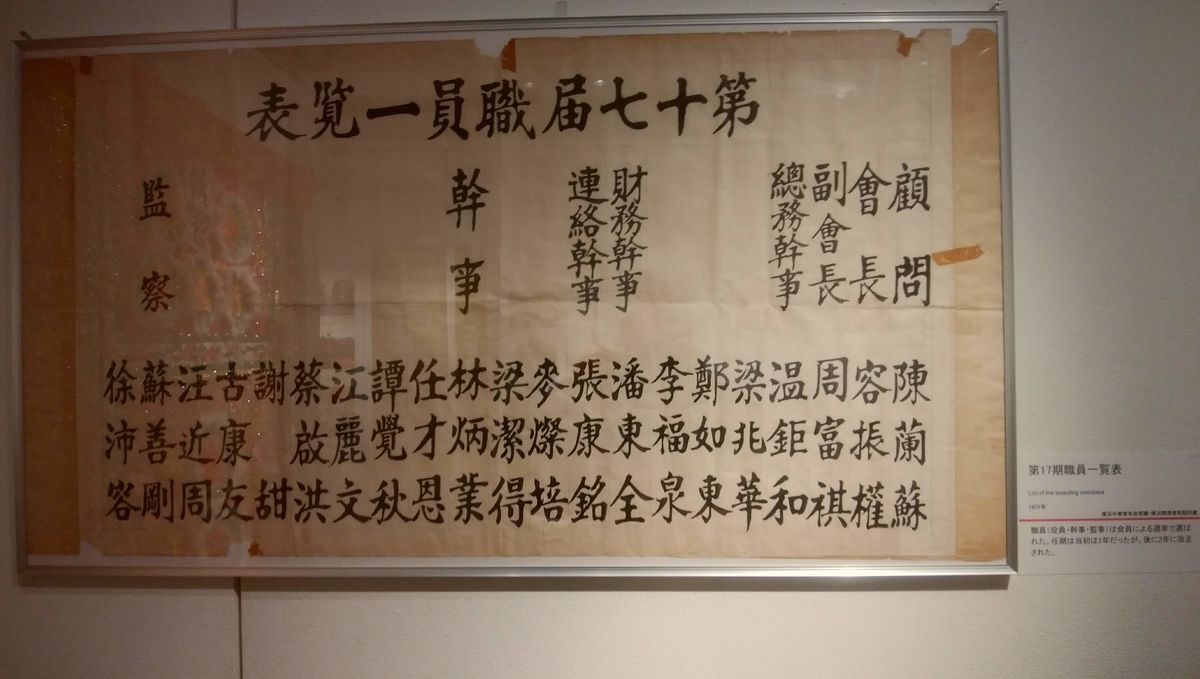 第十七届職員一覽表
顧問 陳蘭蘇
會長 容振權
副會長 周富祺
總務幹事 温鉅和
梁兆華
鄭如東
李福泉
財務幹事 潘東全
連絡幹事 張康銘
麥燦培
梁潔得
幹事 林炳業
任才恩
譚覺秋
江麗文
蔡啟洪
謝甜
古康友
汪近周
監察 蘇善剛
徐沛容
第17期職員一覧表
List of the boarding members
1971年
職員（役員・幹事・監事）は会員による選挙で選ば
れた。任期は当初は1年だったが、後に2年に改正
された。